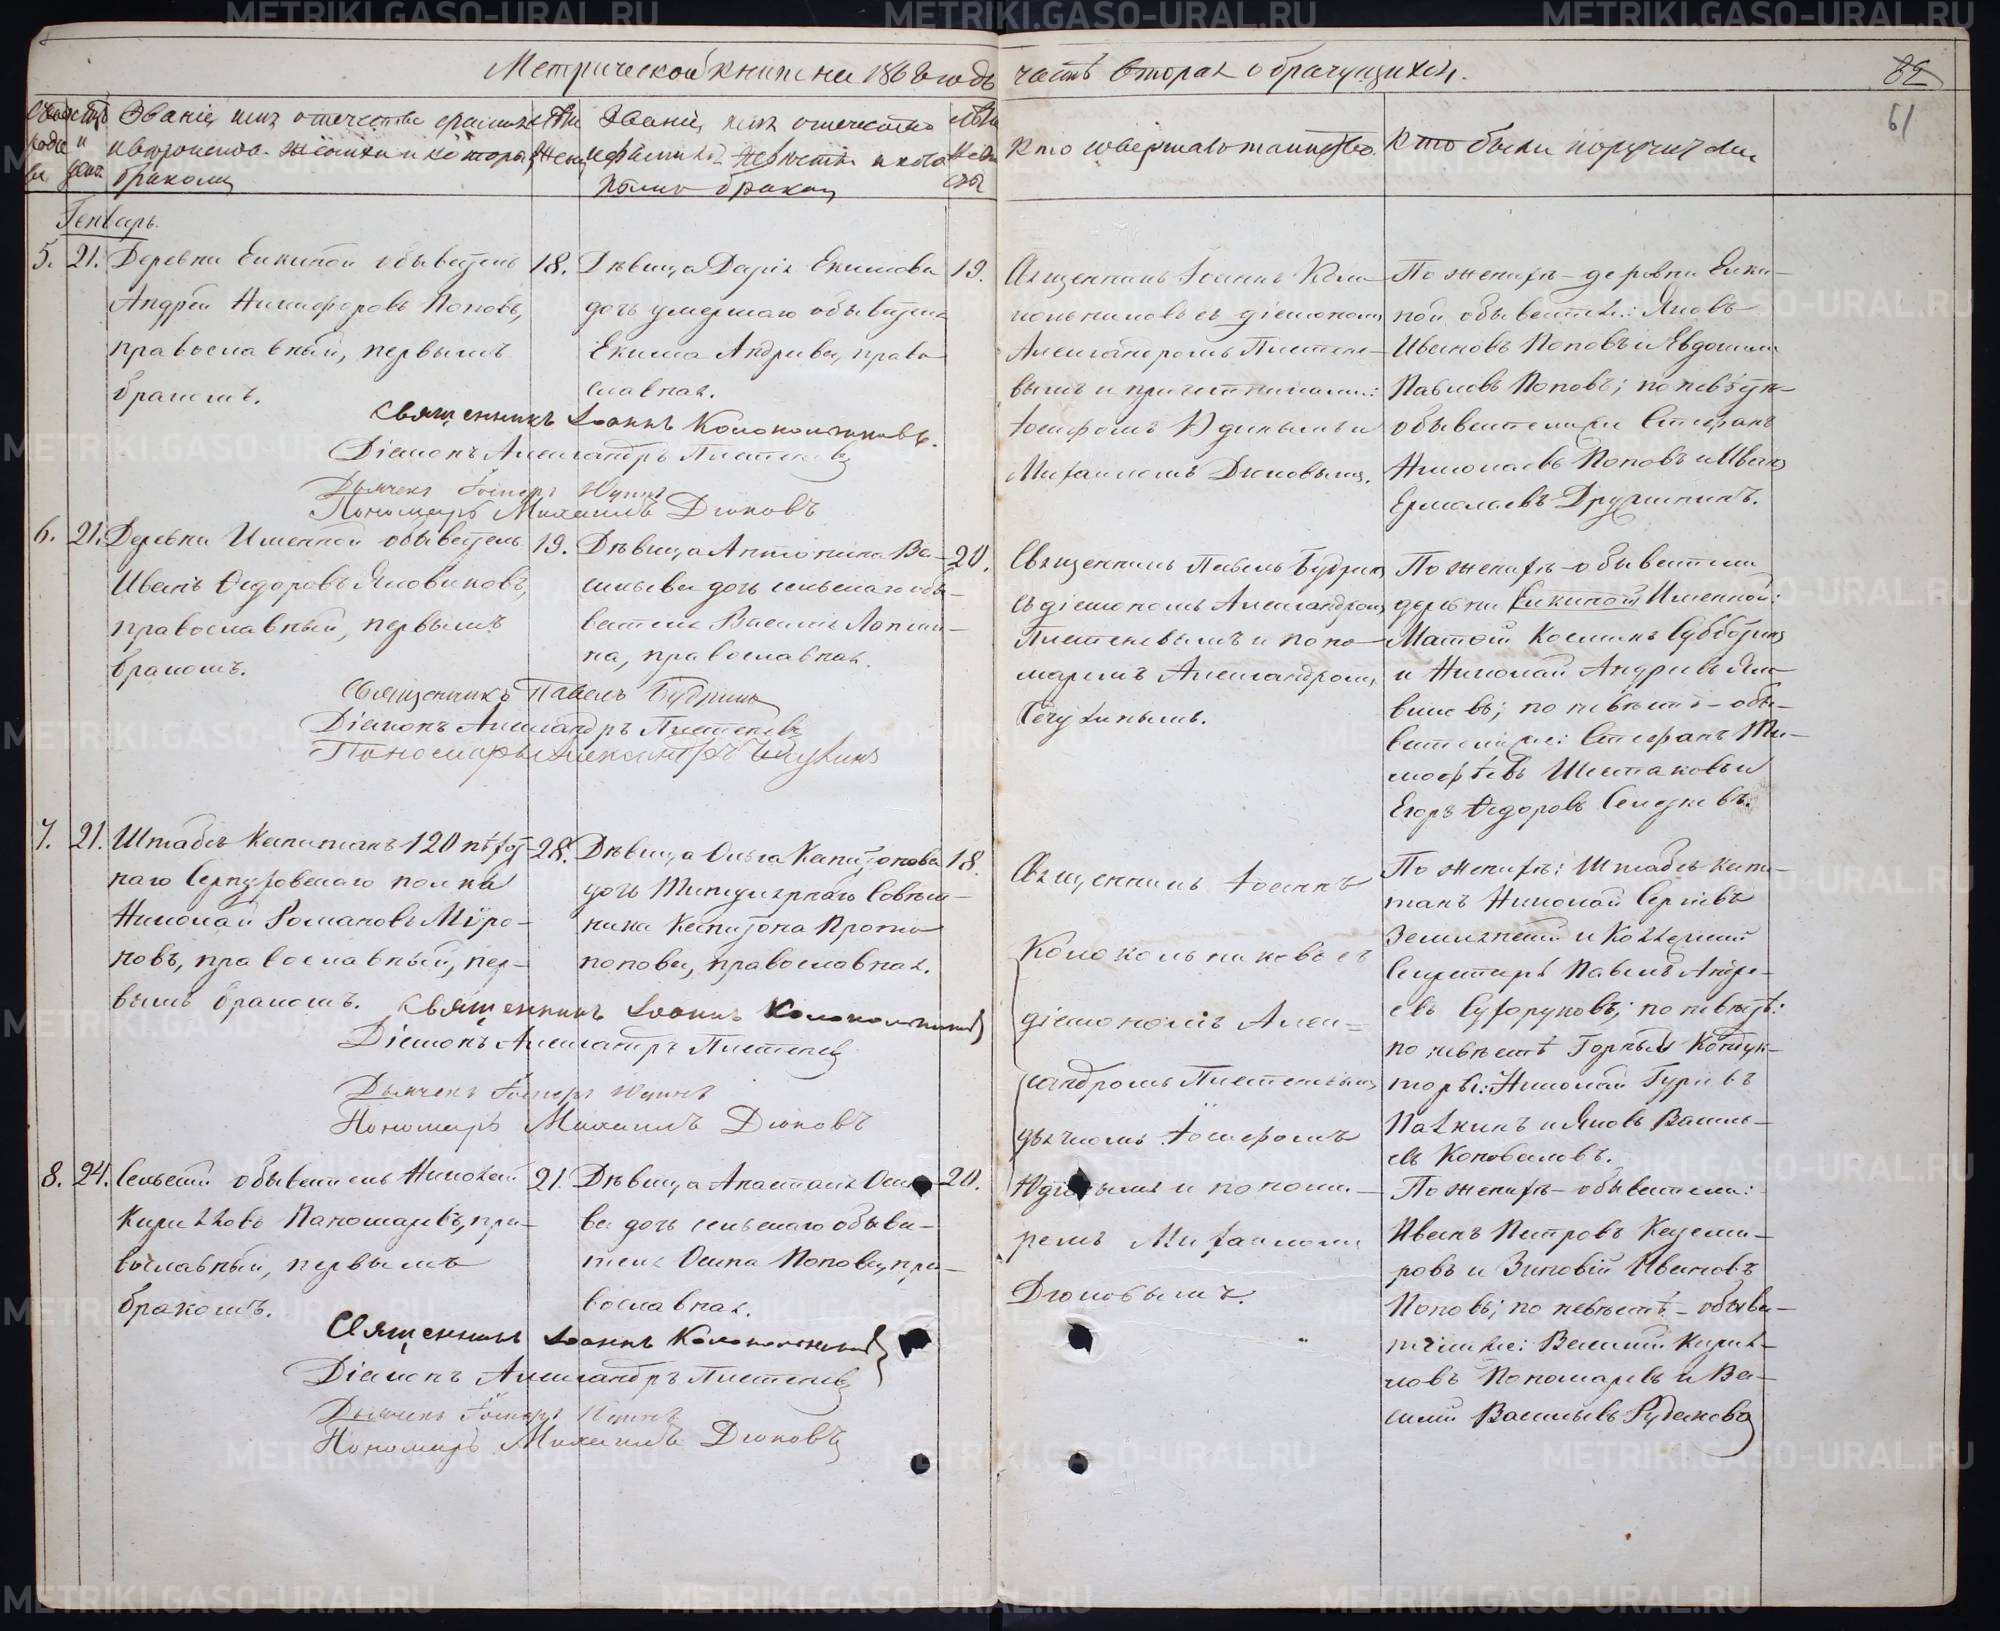 Метрической книги на 1868 годъ часть вторая о бракущихся.
62
61
Званіе, имя отечество фамилія
и вѣроисповѣ. жениха и которымъ
бракомъ
Званіе, имя отечество
и фамилія невѣсты и кото
рымъ бракомъ
Кто совершалъ таинство.
Кто были поручители
Генварь.
5. 21.
Деревни Елкиной обыватель
Андрей Никифоровъ Поповъ,
православный, первымъ
бракомъ.
18.
Дѣвица Дарія Екимова
дочь умершаго обывателя
Екима Андреева, право
славная.
19.
Священникъ Іоаннъ Коло
кольниковъ съ діакономъ
Александромъ Плетене-
вымъ и причетниками:
Іосифомъ Юдинымъ и
Михаиломъ Дюковымъ.
По женихѣ - деревни Елки-
ной обыватели: Яковъ
Ивановъ Поповъ и Евдокимъ
Павловъ Поповъ; по невѣстѣ-
обыватели же Стефанъ
Николаевъ Поповъ и Иванъ
Ермолаевъ Дружининъ.
Священникъ Іоаннъ Колокольниковъ.
Діаконъ Александръ Плетеневъ
Дьячекъ Іосифъ Юдинъ
Пономарь Михаилъ Дюковъ
6. 21.
Деревни Именной обыватель
Иванъ Ѳедоровъ Яковиковъ,
православный, первымъ
бракомъ.
19.
Дѣвица Антонина Ва-
сильева дочь сельскаго обы-
вателя Василья Лопати-
на, православная.
20.
Священникъ Павелъ Будринъ
съ діакономъ Александромъ
Плетеневымъ и поно-
маремъ Александромъ
Сечукинымъ.
По женихѣ - обыватели
деревни Елкиной Именной:
Матѳей Косминъ Субботинъ
и Николай Андреевъ Яко-
виковъ; по невѣстѣ - обы-
ватели же: Стефанъ Ти-
моѳѣевъ Шестаковъ и
Егоръ Ѳедоровъ Селезневъ.
Священникъ Павелъ Будринъ
Діаконъ Александръ Плетеневъ
Пономарь Александръ
7. 21.
Штабсъ Капитанъ 120 пѣхот-
наго Серпуховскаго полка
Николай Романовъ Мѵро-
новъ, православный, пер-
вымъ бракомъ.
28.
Дѣвица Ольга Капитонова
дочь Титулярнаго Совѣт-
ника Капитона Прото
попова, православная.
18.
Священникъ Іоаннъ
Колокольниковъ съ
діакономъ Алек-
сандромъ Плетеневымъ
дьячкомъ Іосифомъ
Юдинымъ и понома-
ремъ Михаиломъ
Дюковымъ.
По женихѣ: Штабсъ Капи-
танъ Николай Сергѣевъ
Земляницынъ и Коллежскій
Секретарь Павелъ Андре-
евъ Сухоруковъ; по невѣстѣ:
по невѣстѣ Горный Кондук-
торы: Николай Гурьевъ
Палкинъ и Яковъ Василь-
евъ Коноваловъ.
Священникъ Іоаннъ Колокольниковъ
Діаконъ Александръ Плетеневъ
Дьячекъ Іосифъ Юдинъ
Пономарь Михаилъ Дюковъ
8. 24.
Сельскій обыватель Николай
Кирилловъ Пономаревъ, пра-
вославный, первымъ
бракомъ.
21.
Дѣвица Анастасія Осипо-
ва дочь сельскаго обыва-
теля Осипа Попова, пра-
вославная.
20.
По женихѣ - обыватели:
Иванъ Петровъ Казами-
ровъ и Зиновій Ивановъ
Поповъ; по невѣстѣ - обыва-
тели же: Василій Кирил-
ловъ Пономаревъ и Ва-
силій Васильевъ Рудаковъ
Священникъ Іоаннъ Колокольниковъ
Діаконъ Александръ Плетеневъ
Дьячекъ Іосифъ Юдинъ
Пономарь Михаилъ Дюковъ
METRIKI.GASO-URAL.RU